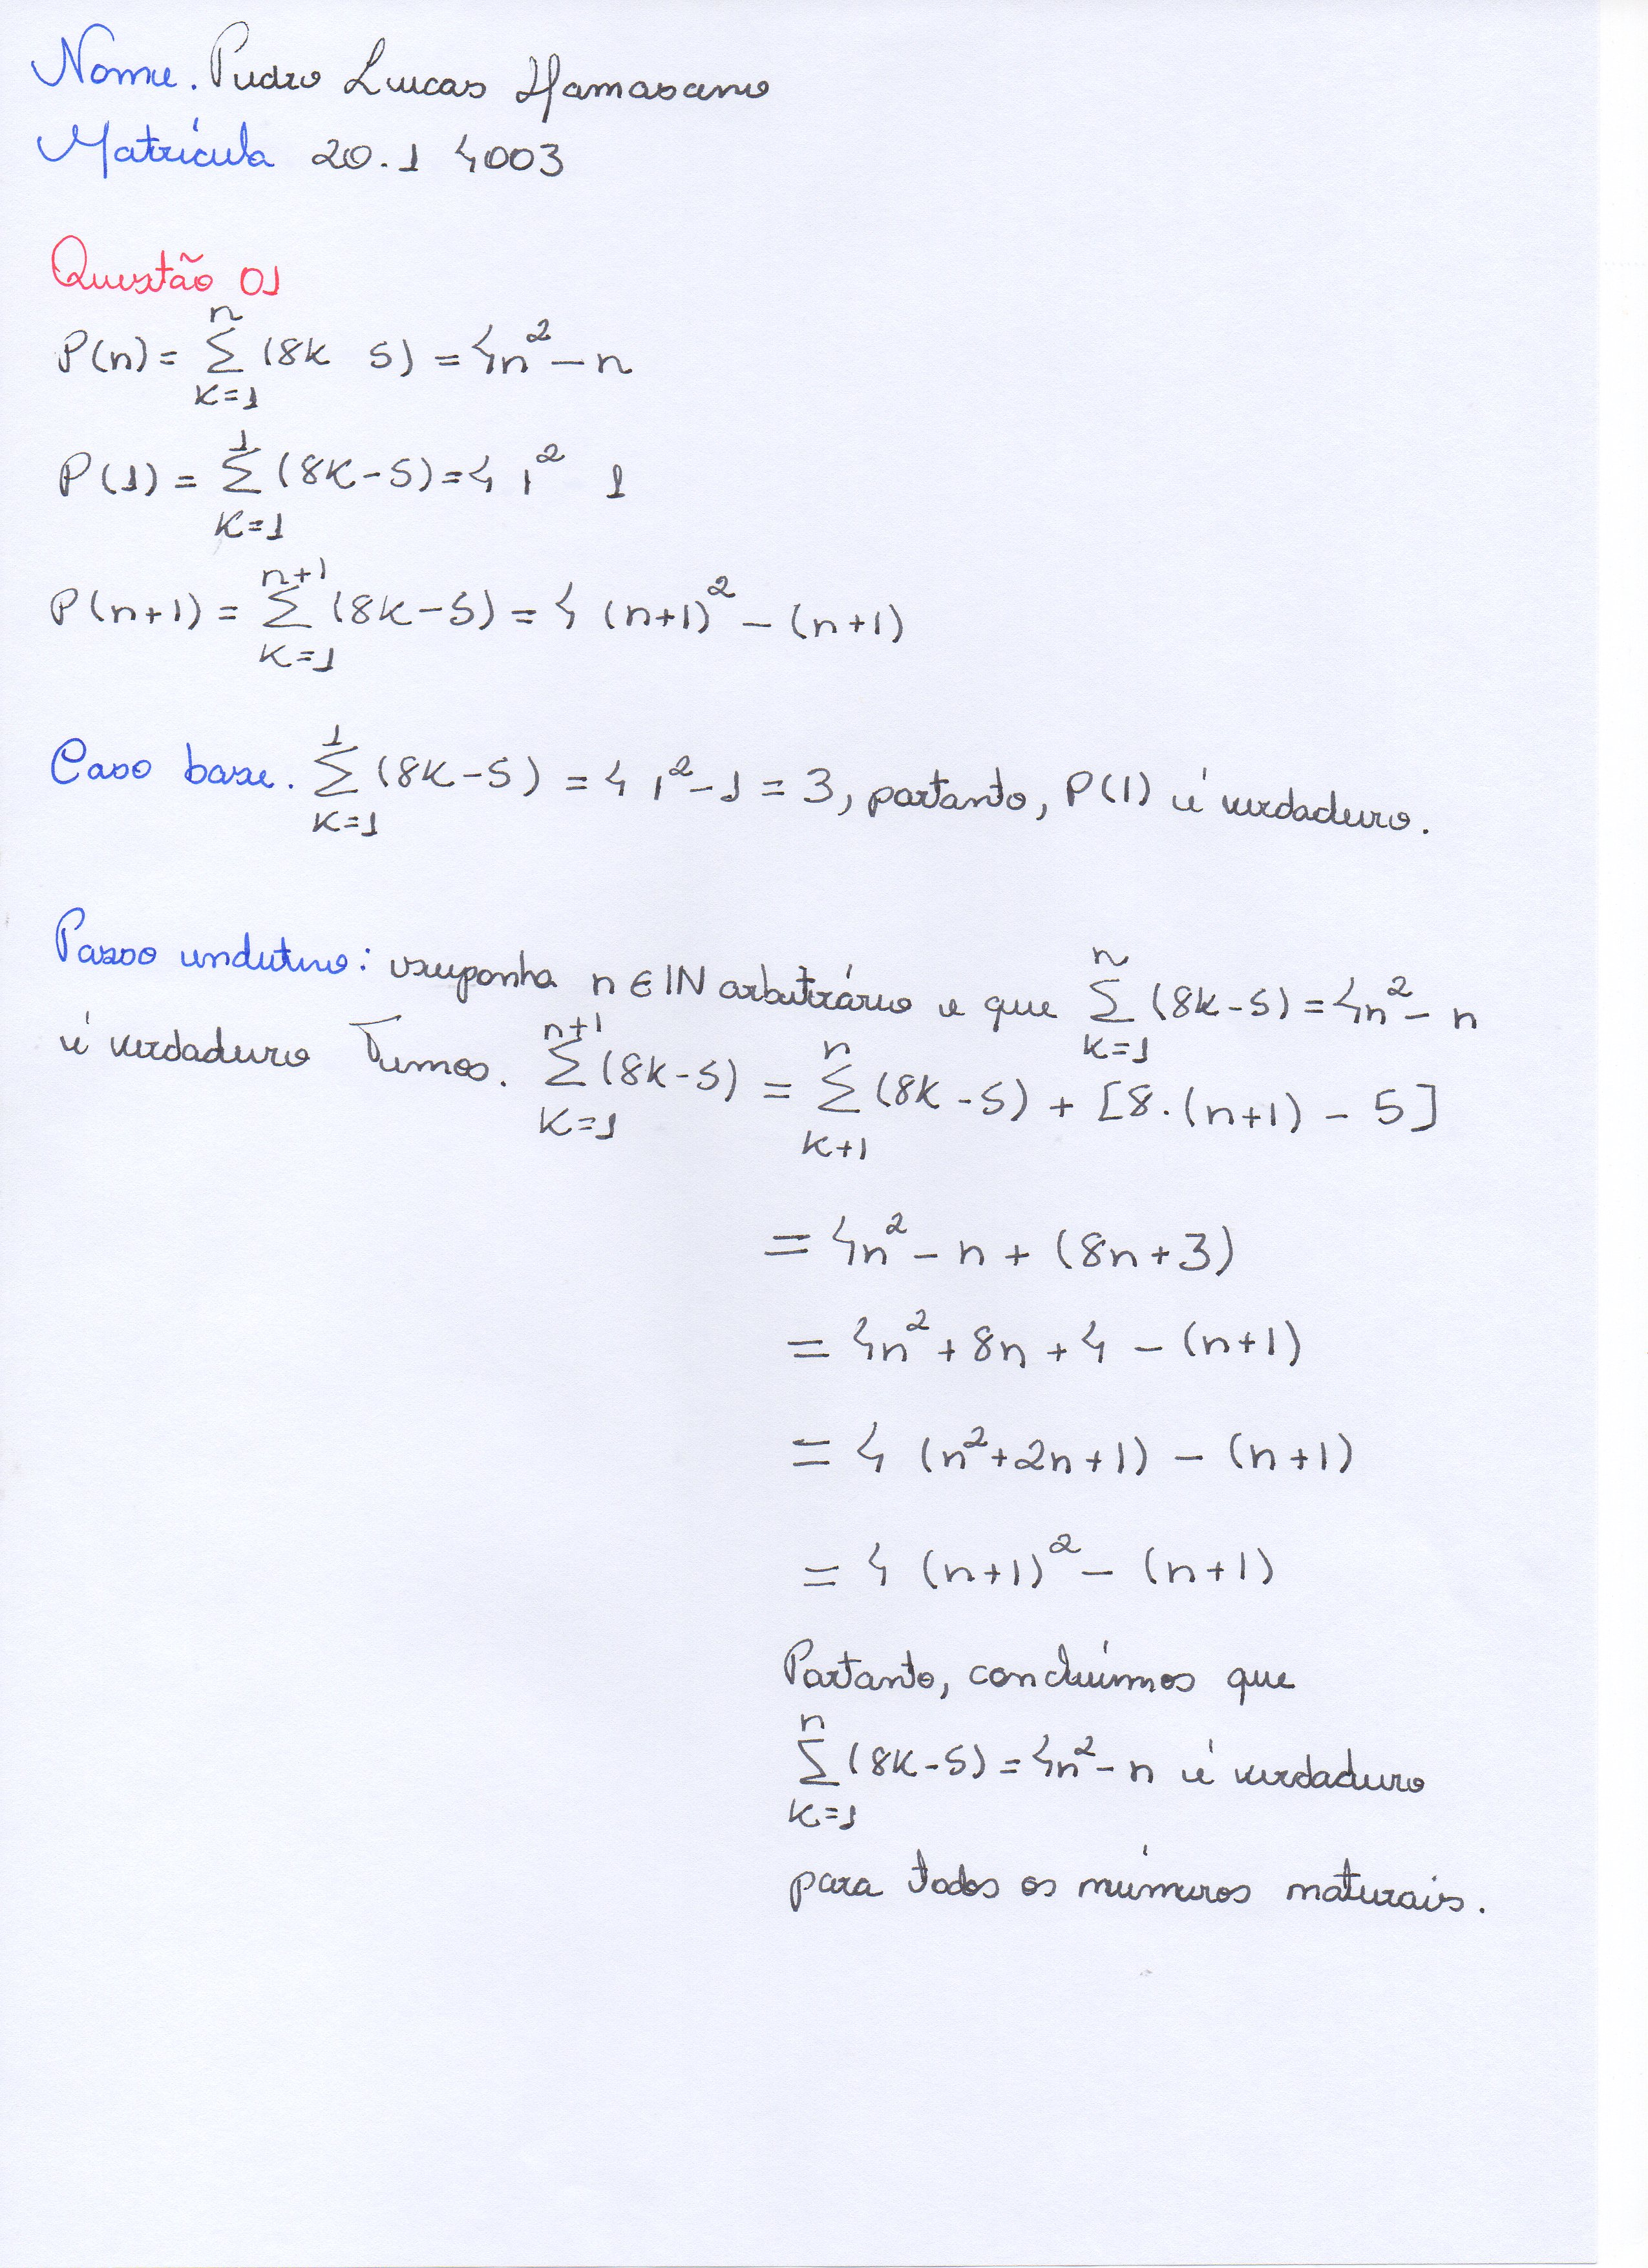 Nome. Pedro Lucas Hamasano
Matrícula 20.1 4003
Questão 01
P(n) = ∑_{k=1}^{n} (8k 5) = 4n² - n
P(1) = ∑_{k=1}^{1} (8k-5) = 4 1² 1
P(n+1) = ∑_{k=1}^{n+1} (8k-5) = 4 (n+1)² - (n+1)
Caso base. ∑_{k=1}^{1} (8k-5) = 4 1² - 1 = 3, portanto, P(1) é verdadeiro.
Passo indutivo: suponha n ∈ IN arbitrário e que ∑_{k=1}^{n} (8k-5) = 4n² - n
é verdadeiro Temos. ∑_{k=1}^{n+1} (8k-5) = ∑_{k+1}^{n} (8k-5) + [8.(n+1) - 5]
= 4n² - n + (8n+3)
= 4n² + 8n + 4 - (n+1)
= 4 (n²+2n+1) - (n+1)
= 4 (n+1)² - (n+1)
Portanto, concluímos que
∑_{k=1}^{n} (8k-5) = 4n² - n é verdadeiro
para todos os números naturais.